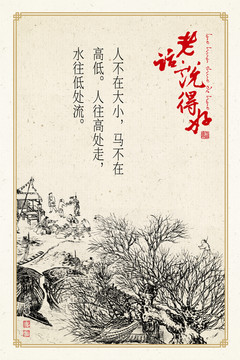 老话说得好
人不在大小，马不在
高低。人往高处走，
水往低处流。